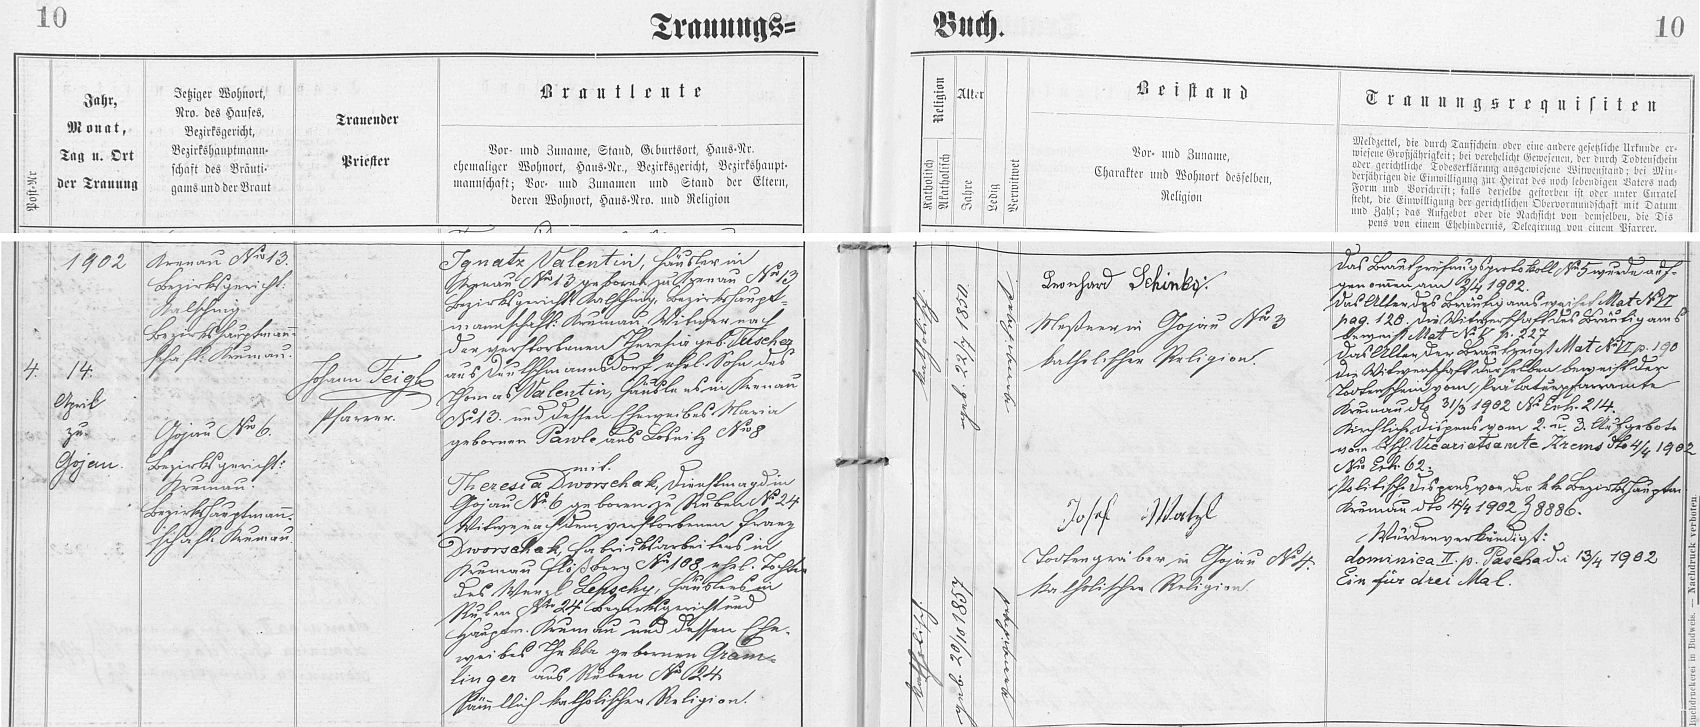 10
Trauungs=
Buch.
10
Post-Nr
Jahr,
Monat,
Tag u. Ort
der Trauung
Jetziger Wohnort,
Nro. des Hauses,
Bezirksgericht,
Bezirkshauptmann-
schaft des Bräuti-
gams und der Braut
Trauender
Priester
Brautleute
Vor- und Zuname, Stand, Geburtsort, Haus-Nr.
ehemaliger Wohnort, Haus-Nr., Bezirksgericht, Bezirkshaupt-
mannschaft; Vor- und Zunamen und Stand der Eltern,
deren Wohnort, Haus-Nro. und Religion
Religion
Katholisch
Akatholisch
Alter
Jahre
Ledig
Verwitwet
Beistand
Vor- und Zuname,
Charakter und Wohnort desselben,
Religion
Trauungsrequisiten
Meldzettel, die durch Taufschein oder eine andere gesetzliche Urkunde er-
wiesene Großjährigkeit; bei verehelicht Gewesenen, der durch Todtenschein
oder gerichtliche Todeserklärung ausgewiesene Witwenstand; bei Min-
derjährigen die Einwilligung zur Heirat des noch lebendigen Vaters nach
Form und Vorschrift; falls derselbe gestorben ist oder unter Curatel
steht, die Einwilligung der gerichtlichen Obervormundschaft mit Datum
und Zahl; das Aufgebot oder die Nachsicht von demselben, die Dis
pens von einem Ehehindernis, Delegirung von einem Pfarrer.
4.
1902
14.
April
zu
Gojau.
Krenau No 13
Bezirksgericht:
Kalsching.
Bezirkshauptmann-
schaft: Krumau.
Gojau No 6.
Bezirksgericht:
Krumau.
Bezirkshauptmann-
schaft: Krumau.
Johann Feigl
Pfarrer.
Ignatz Valentin, Häusler in
Krenau No 13 geboren zu Krenau No 13
Bezirksgericht Kalsching, Bezirkshaupt-
mannschaft: Krumau, Witwer nach
der verstorbenen Theresia geb. Tuscher
aus Deutschmannsdorf, ehel. Sohn des
Thomas Valentin, Häuslers in Krenau
No 13. und dessen Eheweibes Maria
geborenen Pawle aus Losnitz No 8
mit.
Theresia Dworschak, Dienstmagd in
Gojau No 6 geboren zu Ruben No 24
Witwe nach dem verstorbenen Franz
Dworschak, Fabriksarbeiters in
Krumau Flößberg No 108 ehel. Tochter
des Wenzl Lepschy, Häuslers in
Ruben No 24 Bezirksgericht und
Hauptm. Krumau und dessen Ehe-
weibes Thekla geborenen Gram-
linger aus Ruben No 24
Sämmtlich katholischer Religion.
katholisch
geb. 22/7 1850.
verwitwet
katholisch.
geb. 20/10 1857
verwitwet
Leonhard Schinko:
Meßner in Gojau No 3
katholischer Religion.
Josef Watzl
Todtengräber in Gojau No 4.
katholischer Religion.
Das Brautprüfungsprotokoll No 5 wurde auf-
genomen am 2/4 1902.
Das Alter des Bräutigams weiset Mat No VI
pag. 128. die Witwerschaft des Bräutigams
beweist Mat No V p. 227
Das Alter der Braut zeigt Mat No VI p. 190
die Witwenschaft derselben beweist der
Todtenschein vom Prälaturpfarramte
Krumau dto 31/3 1902 No Exh. 214.
Kirchliche Dispens vom 2. u. 3. Aufgebote
vom Vicariatsamte Krems dto 4/4 1902
No Exh. 62.
Politische Dispens von der kk Bezirkshauptm
Krumau dto 4/4 1902 Z 8886.
Würden verkündigt:
dominica II. p. Pascha d. i. 13/4 1902
Ein für drei Mal.
druckerei in Budweis. — Nachdruck verboten